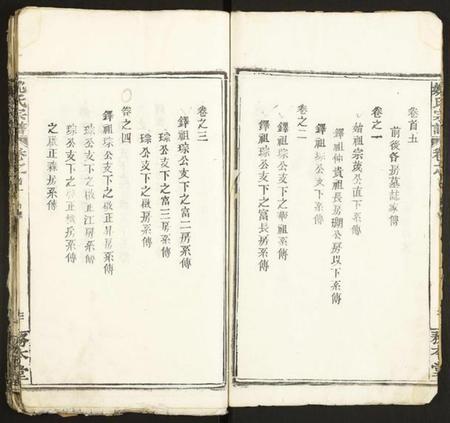 卷首五
前後各房墓誌家傳
卷之一
始祖宗茂公直下系傳
鐸祖仲貴祖長房瑚公房以下系傳
卷之二
鐸祖琮公支下之華祖系傳
鐸祖琮公支下之富長房系傳
卷之三
鐸祖琮公支下之富二房系傳
琮公支下之富三房系傳
琮公支下之啟房系傳
卷之四
鐸祖琮公支下之啟正昇房系傳
琮公支下之啟正江房系傳
琮公支下之啟正
之啟正霖房系傳
姚氏宗譜
務本堂
姚氏宗譜
務本堂